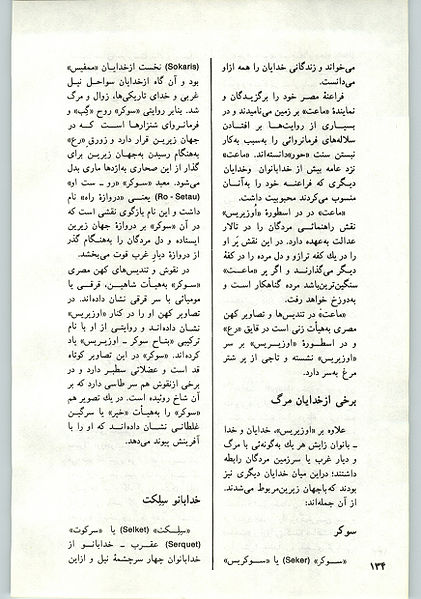 می‌خواند و زندگانی خدایان را همه ازاو
می‌دانست.
فراعنهٔ مصر خود را برگزیدگان و
نمایندهٔ «ماعت» بر زمین می‌نامیدند و در
بسیاری از روایت‌ها بر افتادن
سلاله‌های فرمانروائی را به‌سبب به‌کار
نبستن سنت «حور»دانسته‌اند. «ماعت»
نزد عامه بیش از خدابانوان وخدایان
دیگری که فراعنه خود را به‌آنان
منسوب می‌کردند محبوبیت داشت.
«ماعت» در در اسطورهٔ «اُوزیریس»
نقش راهنمائی مردگان را در تالار
عدالت به‌عهده دارد. در این نقش پَر او
را در یك کفه ترازو و دل مرده را در کفهٔ
دیگر می‌گذارند و اگر پر «ماعت»
سنگین‌ترباشد مرده گناهکار است و
به‌دوزخ خواهد رفت.
«ماعت» در تندیس‌ها و تصاویر کهن
مصری به‌هیأت زنی است در قایق «رع»
و در اسطورهٔ «اوزیریس» بر سر
«اوزیریس» نشسته و تاجی از پر شتر
مرغ به‌سر دارد.
برخی ازخدایان مرگ
علاوه بر «اوزیریس»، خدایان و خدا
ـ بانوان زایش هر یك به‌گونه‌ئی با مرگ
و دیار غرب یا سرزمین مردگان رابطه
داشتند؛ دراین میان خدایان دیگری نیز
بودند که‌باجهان زیرین‌مربوط می‌شدند.
از آن جمله‌اند:
سوکر
«سوکر» (Seker) یا «سوکریس»
(Sokaris) نخست ازخدایان «ممفیس»
بود و آن گاه ازخدایان سواحل نیل
غربی و خدای تاریکی‌ها، زوال و مرگ
شد. بنابر روایتی «سوکر» روح «گِب» و
فرمانروای شنزارها است که در
جهان زیرین قرار دارد و زورق «رع»
به‌هنگام رسیدن به‌جهان زیرین برای
گذار از این صحاری به‌اژدها ماری بدل
می‌شود. معبد «سوکر» «رو ـ ست او»
(Ro - Setau) یعنی «دروازهٔ راه» نام
داشت و این نام بازگوی نقشی است که
در آن «سوکر» بر دروازهٔ جهان زیرین
ایستاده و دل مردگان را به‌هنگام گذر
از دروازهٔ دیار غرب قوت می‌بخشد.
در نقوش و تندیس‌های کهن مصری
«سوکر» به‌هیأت شاهین، قرقی یا
مومیائی با سر قرقی نشان داده‌اند. در
تصاویر کهن او را در کنار «اوزیریس»
نشان داده‌اند و روایتی از او با نام
ترکیبی «بتاح سوکر ـ اوزیریس» یاد
کرده‌اند. «سوکر» در این تصاویر کوتاه
قد است و عضلانی سطبر دارد و در
برخی ازنقوش هم سر طاسی دارد که بر
آن شاخ روئیده است. در یك تصویر هم
«سوکر» را به‌هیأت «خپر» یا سرگین
غلطانی نشان داده‌اند که او را با
آفرینش پیوند می‌دهد.
خدابانو سلِکت
«سلِکت» (Selket) یا «سرکوت»
(Serquet) عقرب ـ خدابانو از
خدابانوان چهار سرچشمهٔ نیل و ازاین
۱۳۴